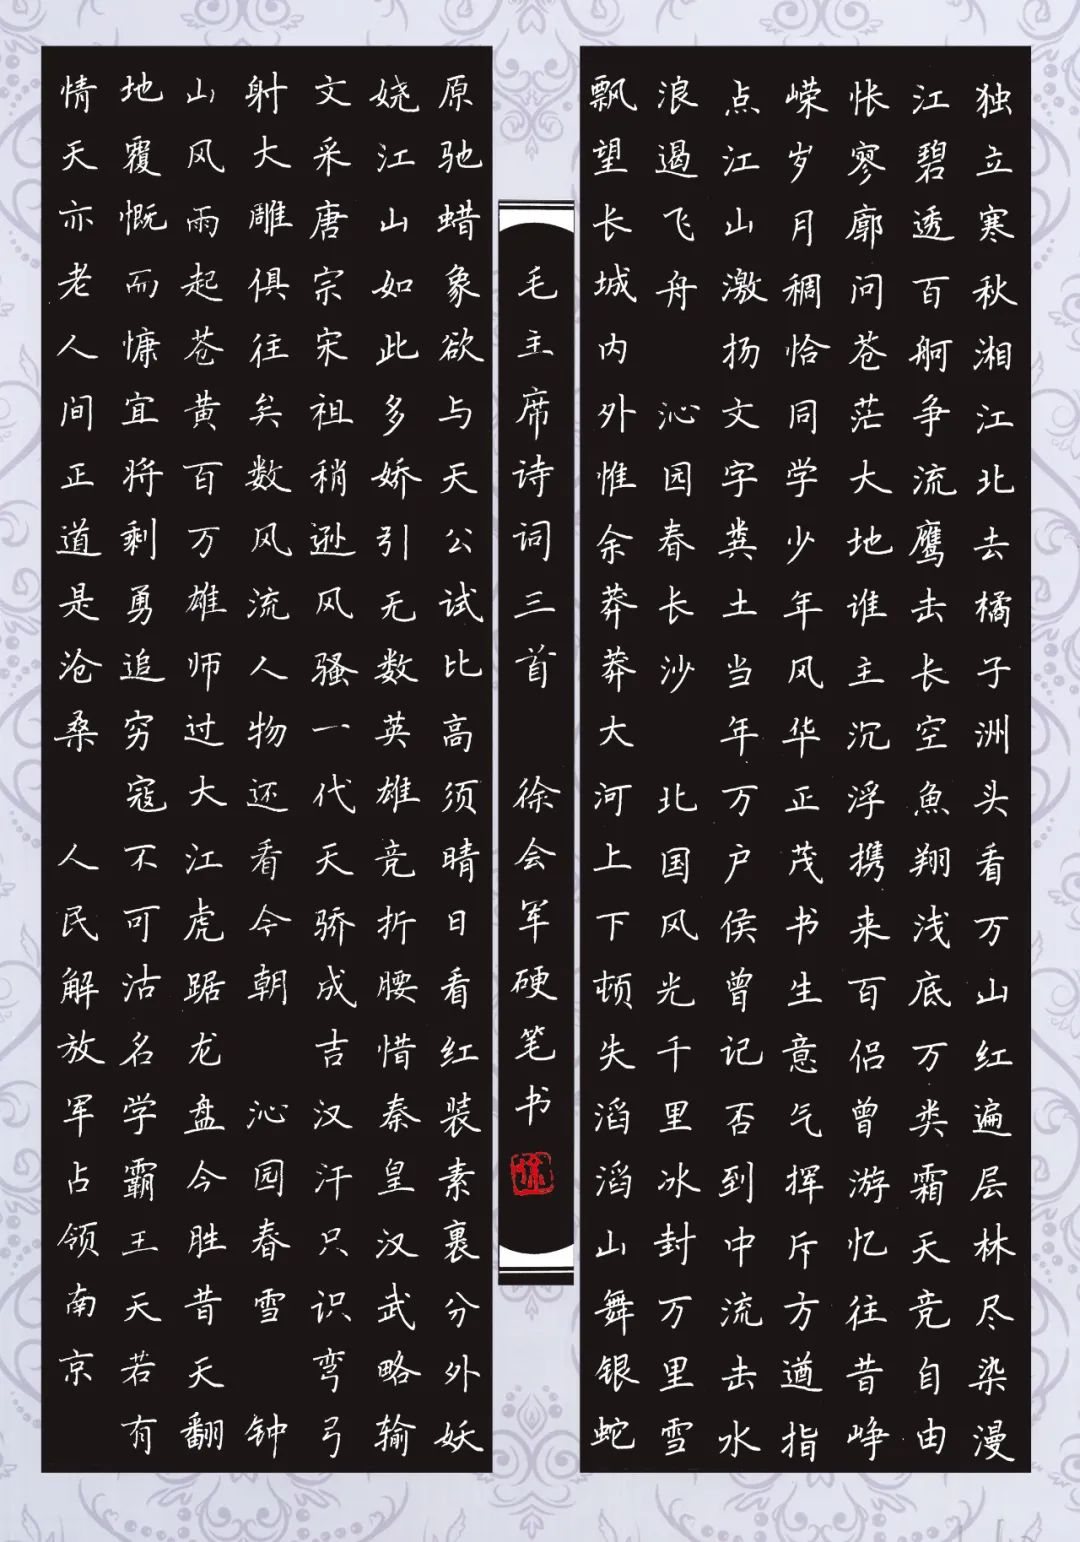 独立寒秋湘江北去橘子洲头看万山红遍层林尽染漫
江碧透百舸争流鹰击长空魚翔浅底万类霜天竞自由
怅寥廓问苍茫大地谁主沉浮携来百侣曾游忆往昔峥
嵘岁月稠恰同学少年风华正茂书生意气挥斥方遒指
点江山激扬文字粪土当年万户侯曾记否到中流击水
浪遏飞舟 沁园春长沙 北国风光千里冰封万里雪
飘望长城内外惟余莽莽大河上下顿失滔滔山舞银蛇
毛主席诗词三首 徐会军硬笔书
原驰蜡象欲与天公试比高须晴日看红装素裹分外妖
娆江山如此多娇引无数英雄竞折腰惜秦皇汉武略输
文采唐宗宋祖稍逊风骚一代天骄成吉汉汗只识弯弓
射大雕俱往矣数风流人物还看今朝 沁园春雪 钟
山风雨起苍黄百万雄师过大江虎踞龙盘今胜昔天翻
地覆慨而慷宜将剩勇追穷寇不可沽名学霸王天若有
情天亦老人间正道是沧桑 人民解放军占领南京